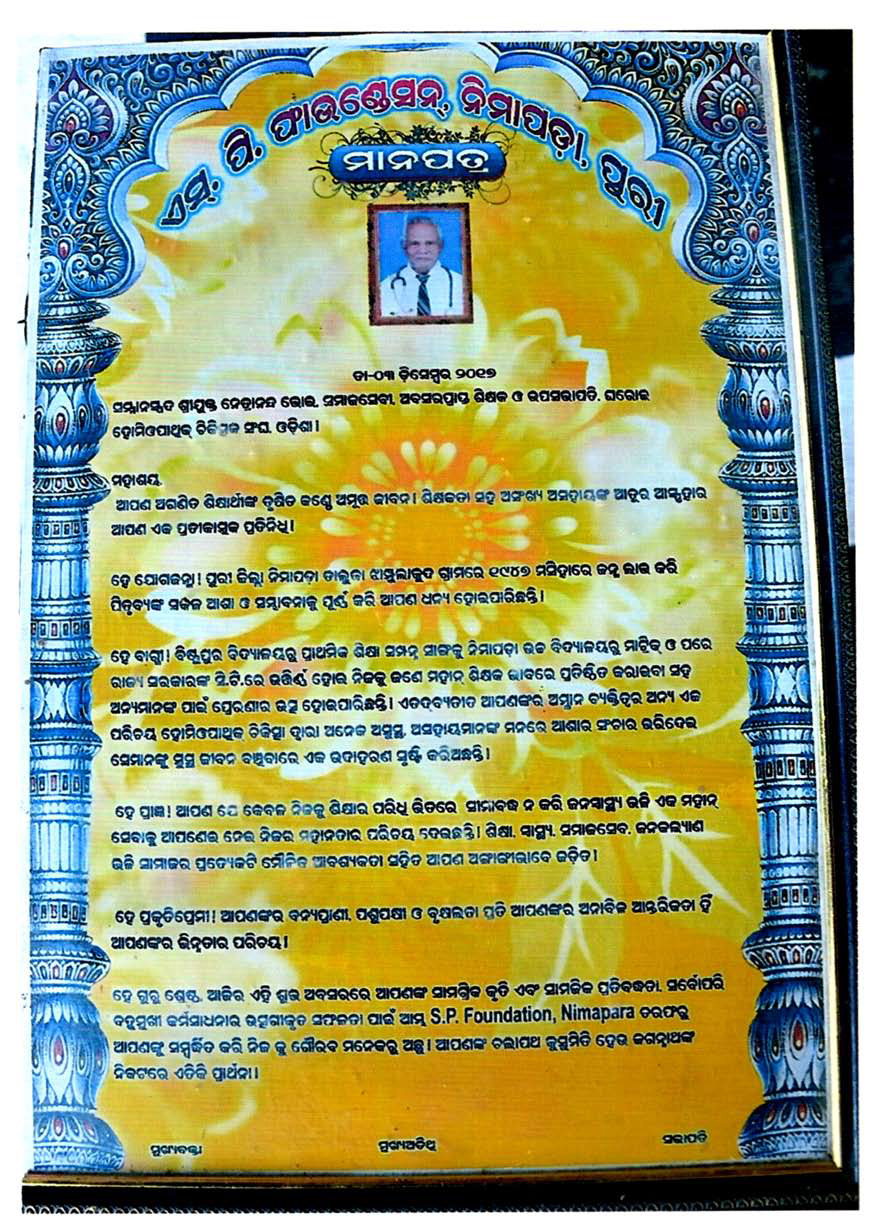 ଏସ୍. ପି. ଫାଉଣ୍ଡେସନ୍, ନିମାପଡ଼ା, ପୁରୀ
ମାନପତ୍ର
ତା-୦୩ ଡ଼ିସେମ୍ବର ୨୦୧୭
ସମ୍ମାନାସ୍ପଦ ଶ୍ରୀଯୁକ୍ତ ନେତ୍ରାନନ୍ଦ ଭୋଇ, ସମାଜସେବୀ, ଅବସରପ୍ରାପ୍ତ ଶିକ୍ଷକ ଓ ଉପସଭାପତି, ଘରୋଇ
ହୋମିଓପାଥିକ୍ ଚିକିତ୍ସକ ସଂଘ, ଓଡ଼ିଶା।
ମହାଶୟ,
ଆପଣ ଅଗଣିତ ଶିକ୍ଷାର୍ଥୀଙ୍କ ତୃଷିତ କଣ୍ଠେ ଅମୃତ ଜୀବନ। ଶିକ୍ଷକତା ସହ ଅସଂଖ୍ୟ ଅସହାୟଙ୍କ ଆତୁର
ଆପଣ ଏକ ପ୍ରତୀକାତ୍ମକ ପ୍ରତିନିଧି।
ହେ ଯୋଗଜନ୍ମା! ପୁରୀ ଜିଲ୍ଲା ନିମାପଡ଼ା ଗ୍ରାମରେ ୧୯୪୭ ମସିହାରେ ଜନ୍ମ ଲାଭ କରି
ପିତୃବ୍ୟଙ୍କ ସର୍ଜ୍ଜନ ଆଶା ଓ ସମ୍ଭାବନାକୁ ପୂର୍ଣ୍ଣ କରି ଆପଣ ଧନ୍ୟ ହୋଇପାରିଛନ୍ତି।
ହେ ବାଗ୍ମୀ! ବିଷ୍ଣୁପୁର ବିଦ୍ୟାଳୟରୁ ପ୍ରାଥମିକ ଶିକ୍ଷା ସମ୍ପନ୍ନ ସାଙ୍ଗକୁ ନିମାପଡ଼ା ଉଚ୍ଚ ବିଦ୍ୟାଳୟରୁ ମାଟ୍ରିକ୍ ଓ ପରେ
ରାଜ୍ୟ ସରକାରଙ୍କ ସି.ଟି.ରେ ଉତ୍ତୀର୍ଣ୍ଣ ହୋଇ ନିଜକୁ ଜଣେ ମହାନ୍ ଶିକ୍ଷକ ଭାବରେ ପ୍ରତିଷ୍ଠିତ କରାଇବା ସହ
ଅନ୍ୟମାନଙ୍କ ପାଇଁ ପ୍ରେରଣାର ଉତ୍ସ ହୋଇପାରିଛନ୍ତି। ଏତଦ୍‌ବ୍ୟତୀତ ଆପଣଙ୍କର ଅମ୍ଳାନ ବ୍ୟକ୍ତିତ୍ୱର ଅନ୍ୟ ଏକ
ପରିଚୟ ହୋମିଓପାଥିକ୍ ଚିକିତ୍ସା ଦ୍ୱାରା ଅନେକ ଅସୁସ୍ଥ, ଅସହାୟମାନଙ୍କ ମନରେ ଆଶାର ସଂଚାର ଭରିଦେଇ
ସେମାନଙ୍କୁ ସୁସ୍ଥ ଜୀବନ ବଞ୍ଚିବାରେ ଏକ ଉଦାହରଣ ସୃଷ୍ଟି କରିଅଛନ୍ତି।
ହେ ପ୍ରାଜ୍ଞ! ଆପଣ ଯେ କେବଳ ନିଜକୁ ଶିକ୍ଷାର ପରିଧି ଭିତରେ ସୀମାବଦ୍ଧ ନ କରି ଜନସ୍ୱାସ୍ଥ୍ୟ ଭଳି ଏକ ମହାନ୍
ସେବାକୁ ଆପଣେଇ ନେଇ ନିଜର ମହାନତାର ପରିଚୟ ଦେଇଛନ୍ତି। ଶିକ୍ଷା, ସ୍ୱାସ୍ଥ୍ୟ, ସମାଜସେବା, ଜନକଲ୍ୟାଣ
ଭଳି ସାମାଜର ପ୍ରତ୍ୟେକଟି ମୌଳିକ ଆବଶ୍ୟକତା ସହିତ ଆପଣ ଅଙ୍ଗାଙ୍ଗୀଭାବେ ଜଡ଼ିତ।
ହେ ପ୍ରକୃତିପ୍ରେମୀ! ଆପଣଙ୍କର ବନ୍ୟପ୍ରାଣୀ, ପଶୁପକ୍ଷୀ ଓ ବୃକ୍ଷଲତା ପ୍ରତି ଆପଣଙ୍କର ଅନାବିଳ ଆନ୍ତରିକତା ହିଁ
ଆପଣଙ୍କର ଭିନ୍ନତାର ପରିଚୟ।
ହେ ଗୁରୁ ଶ୍ରେଷ୍ଠ, ଆଜିର ଏହି ଶୁଭ ଅବସରରେ ଆପଣଙ୍କ ସାମଗ୍ରିକ କୃତି ଏବଂ ସାମାଜିକ ପ୍ରତିବଦ୍ଧତା, ସର୍ବୋପରି
ବହୁମୁଖୀ କର୍ମସାଧନାର ଉତ୍ସର୍ଗୀକୃତ ସଫଳତା ପାଇଁ ଆମ୍ଭ S.P. Foundation, Nimapara ତରଫରୁ
ଆପଣଙ୍କୁ ସମ୍ବର୍ଦ୍ଧିତ କରି ନିଜ କୁ ଗୌରବ ମନେକରୁ ଅଛୁ। ଆପଣଙ୍କ ଚଲାପଥ କୁସୁମିତି ହେଉ ଜଗନ୍ନାଥଙ୍କ
ନିକଟରେ ଏତିକି ପ୍ରାର୍ଥନା।
ମୁଖ୍ୟବକ୍ତା ମୁଖ୍ୟଅତିଥି ସଭାପତି